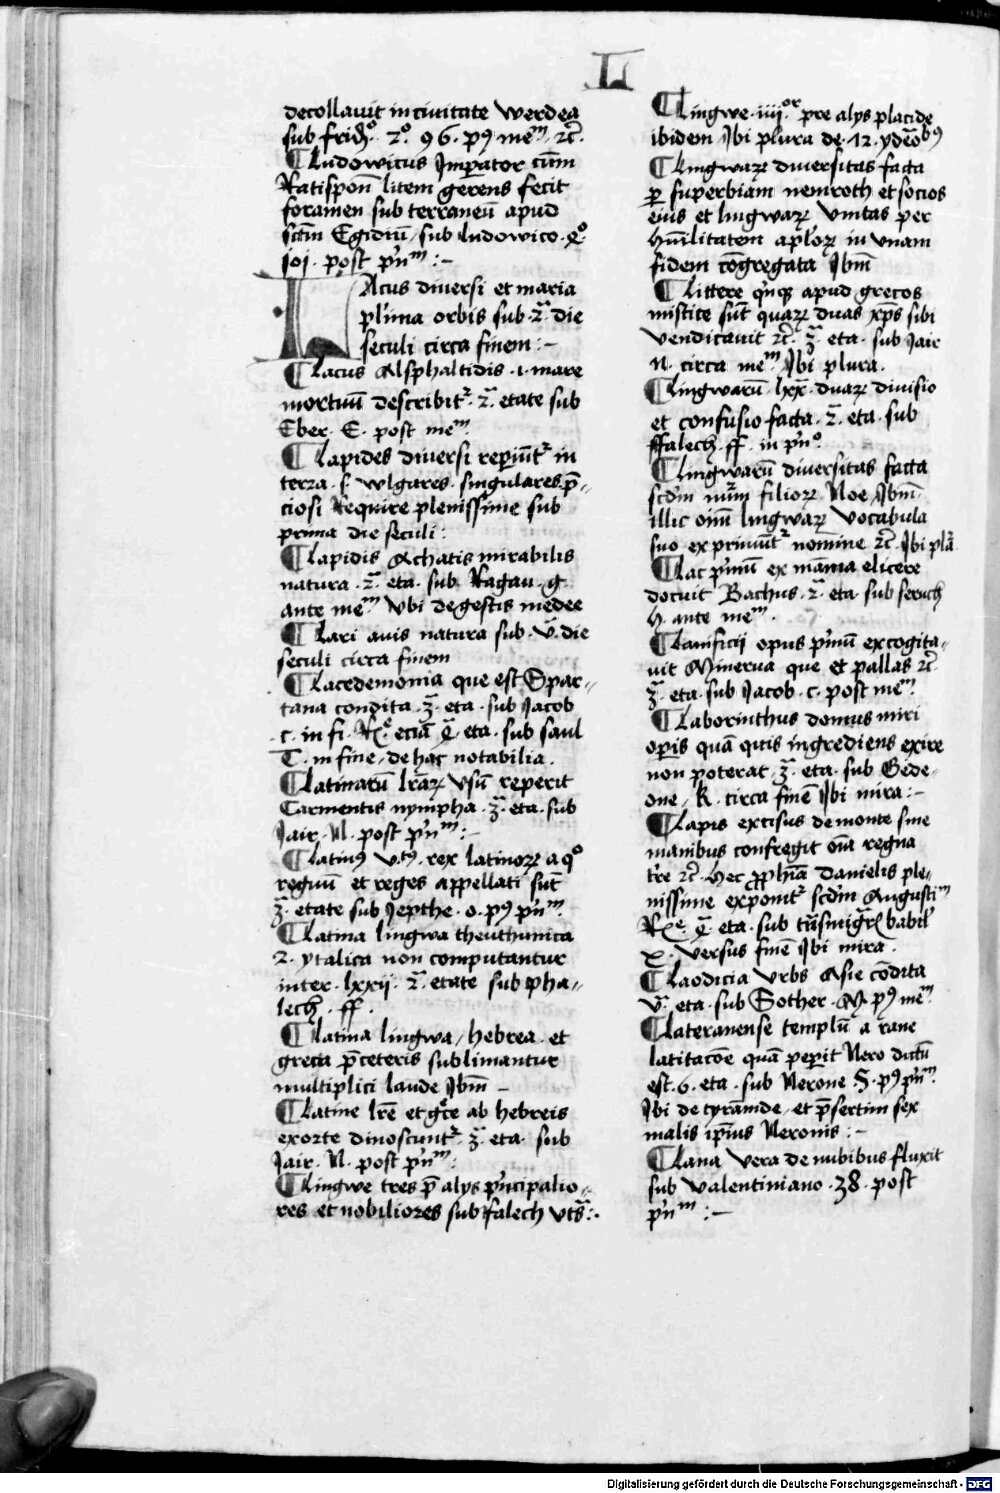 L
decollavit in civitate werdea
sub frid͛ᵒ. 2ᵒ. 96. p⁹ meᵐ. ⁊c̃.
¶ Ludowicus Imperator cum̄
Ratispon̄ litem gerens fecit
foramen sub terraneū apud
sctm̄ Egidiū, sub ludowico. 4ᵒ
joj. post p'nᵐ :-
Lacus diversi et maria
pl'ima orbis sub. 2ᵃ. die
seculi circa finem :-
¶ Lacus Asphaltidis .i. mare
mortuū describit᷑. 2ᵃ. etate sub
Eber. E. post meᵐ.
¶ Lapides diversi reperiūt᷑ in
terra. s. wlgares. singulares. p̄-
ciosi Require plenissime sub
prima die seculi :
¶ Lapidis Achatis mirabilis
natura. 2ᵃ. eta. sub Ragau. g.
ante meᵐ ubi de gestis medee
¶ Lari avis natura sub. v. die
seculi circa finem
¶ Lacedemonia que est Spar-
tana condita. 3ᵃ. eta. sub Jacob
c. in fi. Rᵉ. eciā 4ᵃ. eta. sub saul
T. in fine, de hac notabilia.
¶ Latinarū lr̄aꝝ vsū reperit
Carmentis nympha. 3ᵃ. eta. sub
Jair. N. post p'nᵐ :-
¶ Latin⁹ rex latinorꝝ a qᵒ
regnū et reges appellati sūt
3ᵃ. etate sub Jepthe. o. p⁹ p'nᵐ.
¶ Latina lingwa theuthunica
2. ytalica non computantur
inter. lxxij. 2ᵃ. etate sub pha-
lech. ff.
¶ Latina lingwa, hebrea. et
greca p̄ceteris sublimantur
multiplici laude Jbm̄ -
¶ Latine lr̄e et gr̄ce ab hebreis
exorte dinoscunt᷑. 3ᵃ. eta. sub
Jair. N. post p'nᵐ :
¶ Lingwe tres p̄ alys p'ncipalio-
res et nobiliores sub falech vts̄ :.
¶ Lingwe. iiij.ᵒʳ pre alys placide
ibidem Jbi plura de. 12. ydeōb⁹
¶ Lingwaꝝ diversitas facta
ꝑ superbiam nemroth et socios
eius et lingwaꝝ vnitas per
hūilitatem apl'oꝝ in vnam
fidem cōgregata Jbm̄
¶ Littere q'nqꝫ apud grecos
mistice sūt quaꝝ duas xp̄s sibi
vendicavit ⁊c̃. 3ᵃ. eta. sub Jair
N. circa meᵐ Jbi plura.
¶ Lingwarū. lxx. duaꝝ divisio
et confusio facta. 2ᵃ. eta. sub
ffalech. ff. in p'nᵒ.
¶ Lingwarū diversitas facta
scd'm nūm filioꝝ Noe, Jbm̄.
illic oīm lingwaꝝ vocabula
suo exprimūt᷑ nomine ⁊c̃. Jbi pl'a
¶ Lac p'mū ex mām̄a elicere
docuit Bachus. 2ᵃ. eta. sub seruch
h. ante meᵐ.
¶ Lanificii opus p'mū excogita-
vit Minerva que et pallas ⁊c̃
3ᵃ. eta. sub Jacob. c. post meᵐ.
¶ Laborinthus domus miri
operis quā quis ingrediens exire
non poterat. 3ᵃ. eta. sub Gede-
one, K. circa finē Jbi mira :-
¶ Lapis excisus de monte sine
manibus confregit oīa regna
tr̄e ⁊c̃. hec ꝓphīa Danielis ple-
nissime exponit᷑ scd'm Augustiᵐ
Rᵉ. 4ᵃ. eta. sub babil'
x. versus finē Jbi mira.
¶ Laodicia vrbs Asie cōdita
v. eta. sub Sother. M. p⁹ meᵐ.
¶ Lateranense templū a rane
latitacōe quā peperit Nero dictū
est. 6. eta. sub Nerone S. p⁹ p'nᵐ.
Jbi de tyrannide, et p̄sertim sex
malis ip̄ius Neronis :-
¶ Lana vera de nubibus fluxit
sub Valentiniano. 38. post
p'nᵐ :-
Digitalisierung gefördert durch die Deutsche Forschungsgemeinschaft - DFG